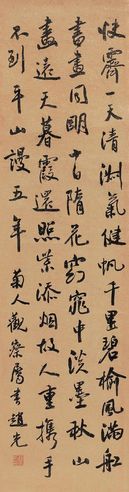 快霽一天清淑氣健帆千里碧榆風滿船
書畫同明十日隋花窈窕中淡墨秋山
畫遠天暮霞還照紫添烟故人重攜手
不到平山謾五年 菊人觀察屬書 趙光